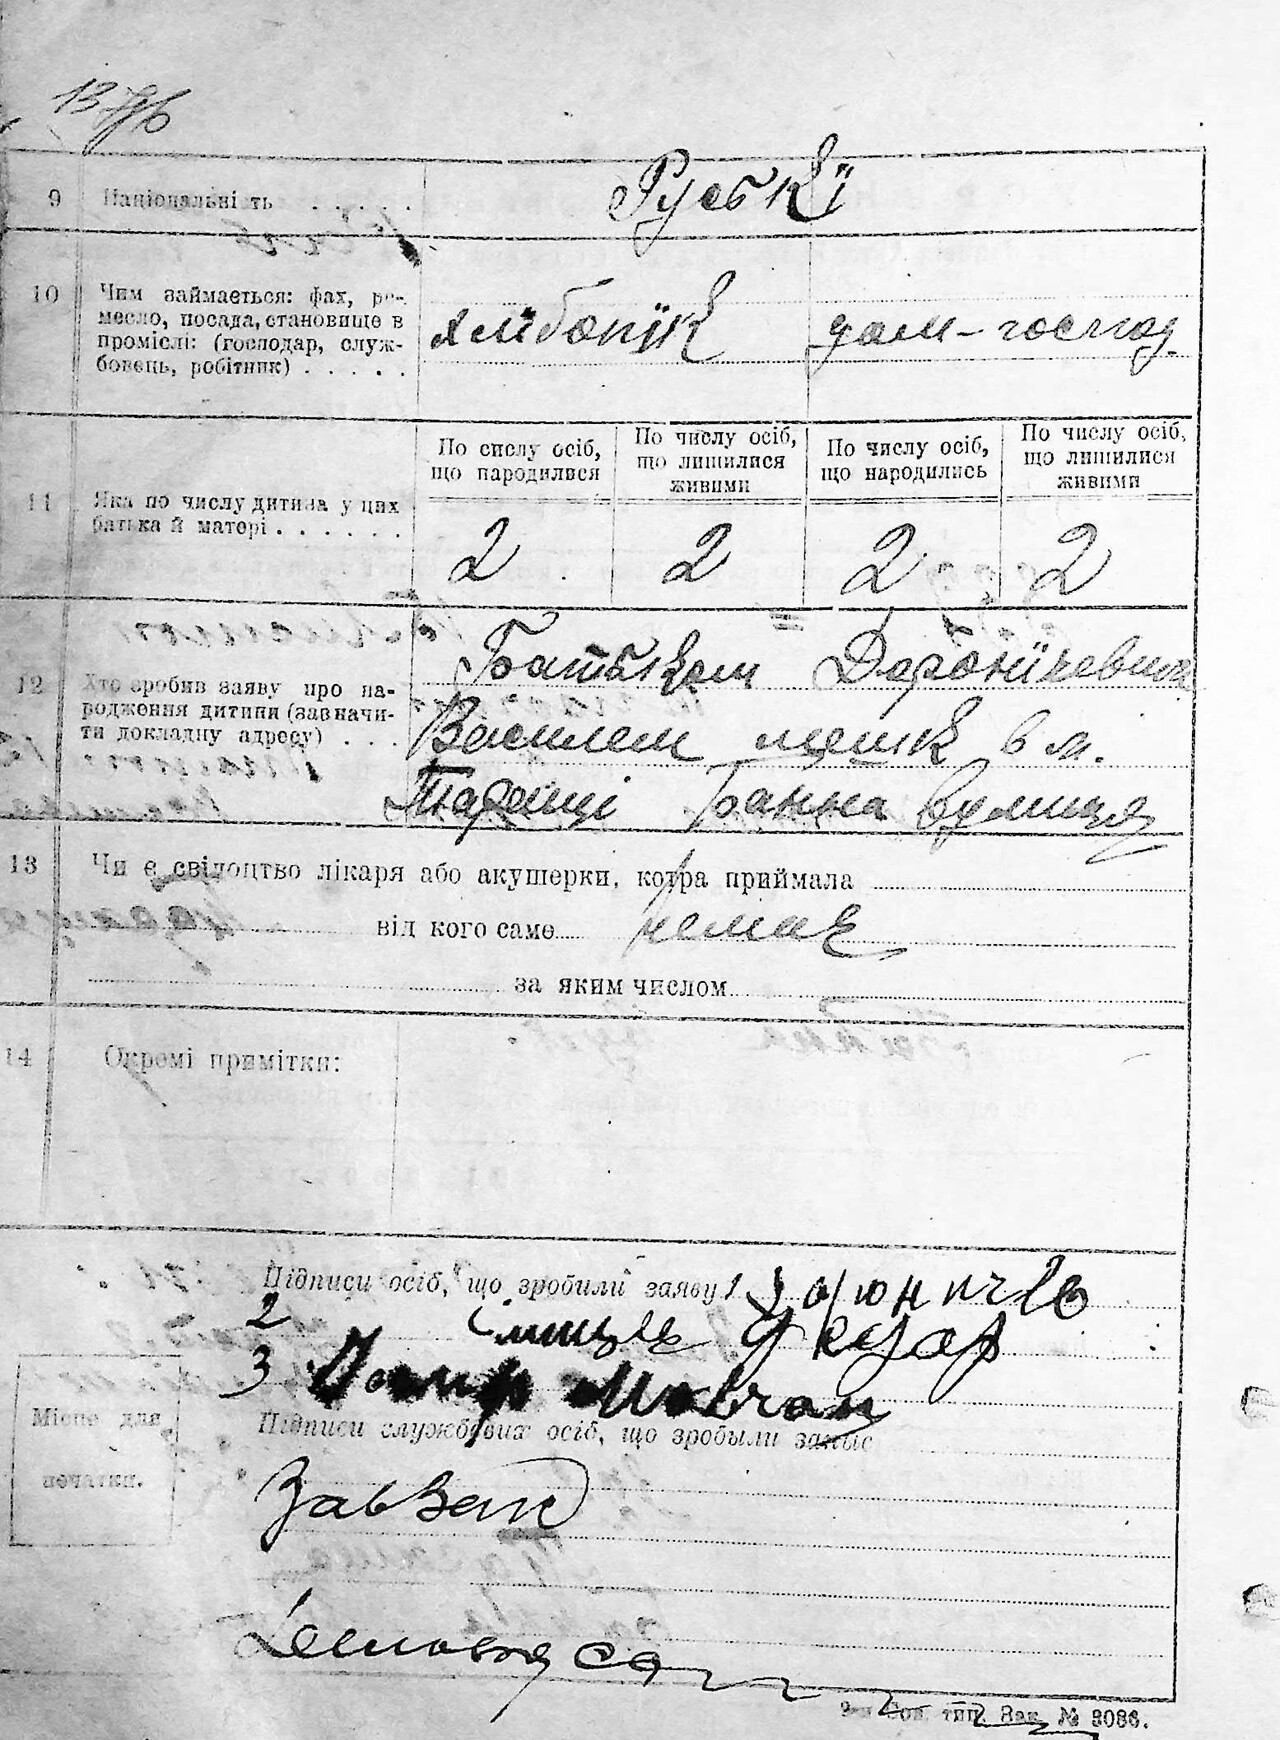 9 Національні ть . . . . . Руські
10 Чим займається: фах, ре-
месло, посада, становище в
проміслі: (господар, служ-
бовець, робітник) . . . . .
хлїборїк дом-господ.
11 Яка по числу дитина у цих
батька й матері . . . . . .
По числу осіб,
що народилися
По числу осіб,
що лишилися
живими
По числу осіб,
що народились
По числу осіб,
що лишилися
живими
2 2 2 2
12 Хто зробив заяву про на-
родження дитини (зазначи-
ти докладну адресу) . . .
Батьком
Василем мешк в м.
Таращі Банна вулиця
13 Чи є свілоцтво лікаря або акушерки, котра приймала
від кого саме немає
за яким числом
14 Окремі примітки:
Підписи осіб, що зробили заяву 1
2
3 Мовчан
Підписи службових осіб, що зробыли запыс
Місце для
печатки.
Завзаг
Зак. № 3086.